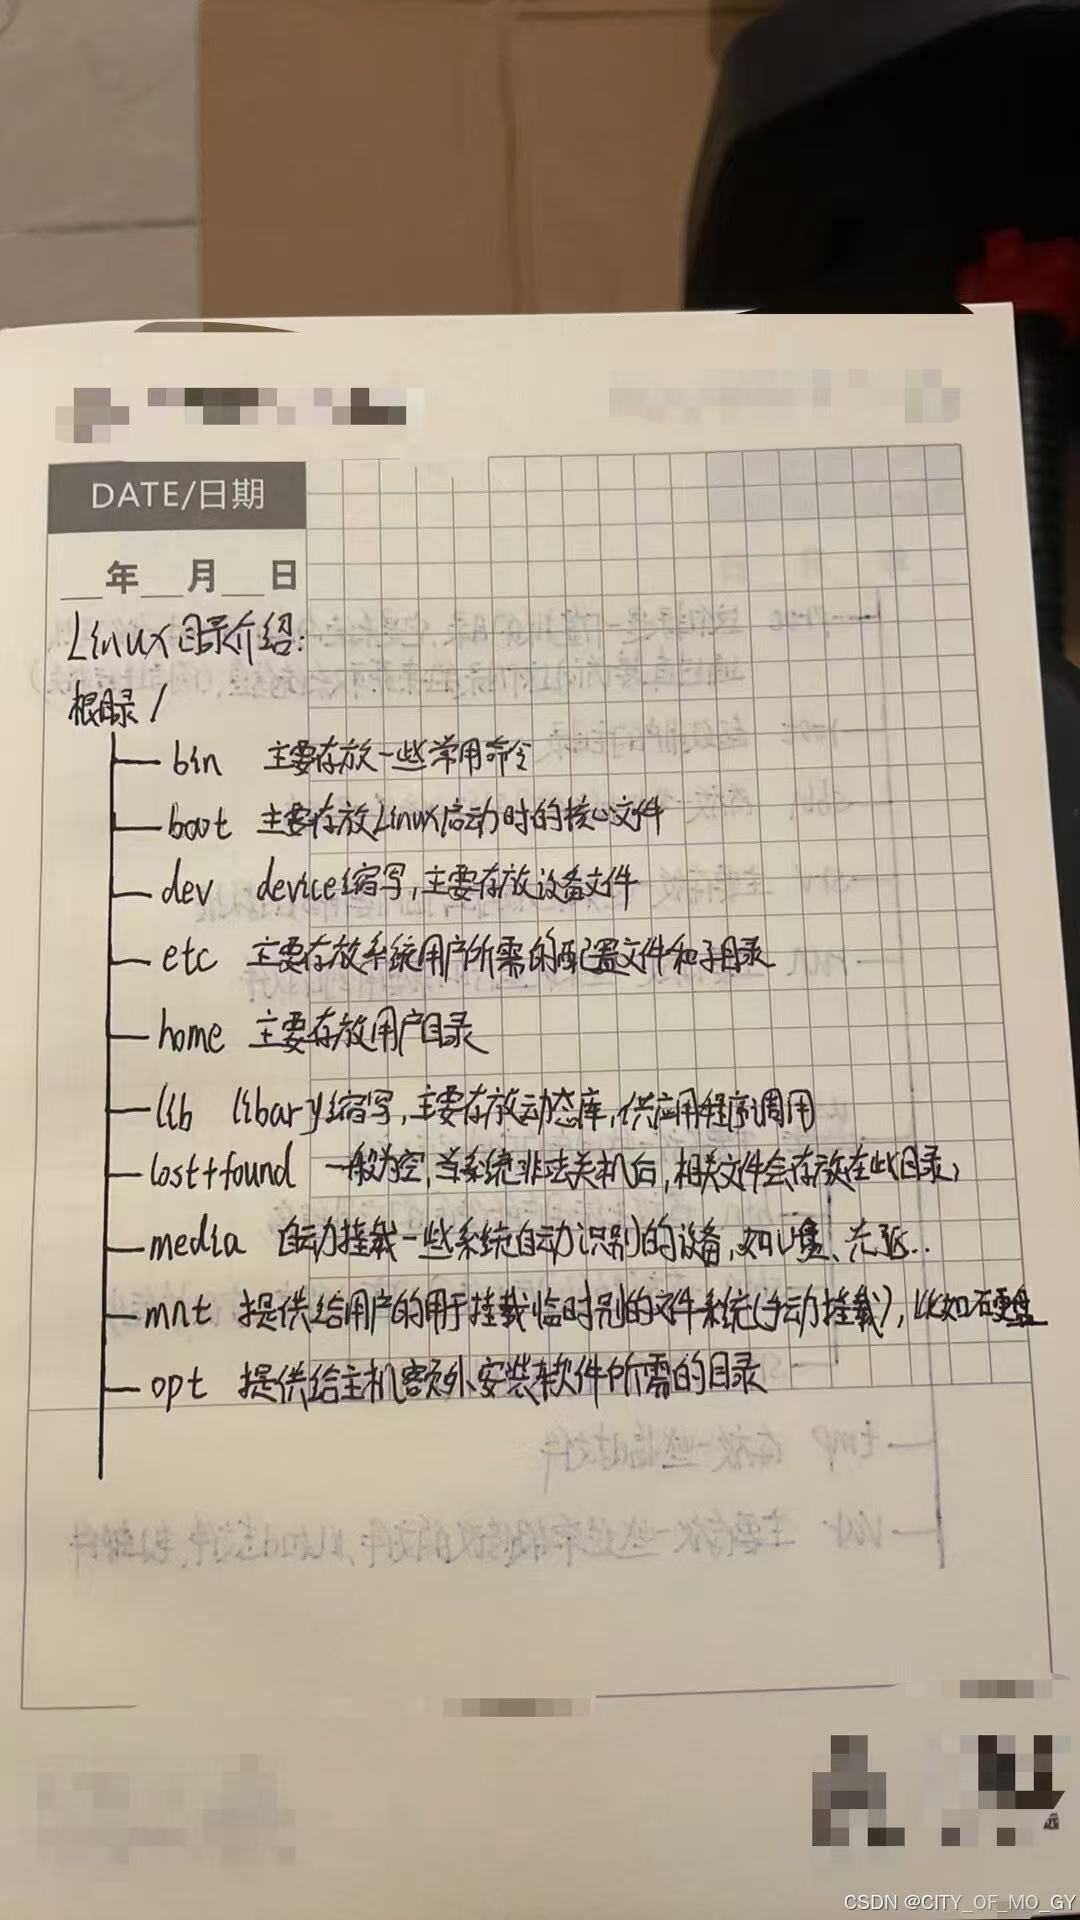 DATE/日期
__年__月__日
Linux目录介绍:
根目录 /
bin 主要存放一些常用命令
boot 主要存放Linux启动时的核心文件
dev device缩写,主要存放设备文件
etc 主要存放系统用户所需的配置文件和子目录
home 主要存放用户目录
lib libary缩写,主要存放动态库,供应用程序调用
lost+found 一般为空,当系统非法关机后,相关文件会存放在此目录,
media 自动挂载一些系统自动识别的设备,如U盘、光驱..
mnt 提供给用户的用于挂载临时别的文件系统(手动挂载),比如硬盘
opt 提供给主机额外安装软件所需的目录
tmp 存放一些临时文件
CSDN @CITY_OF_MO_GY